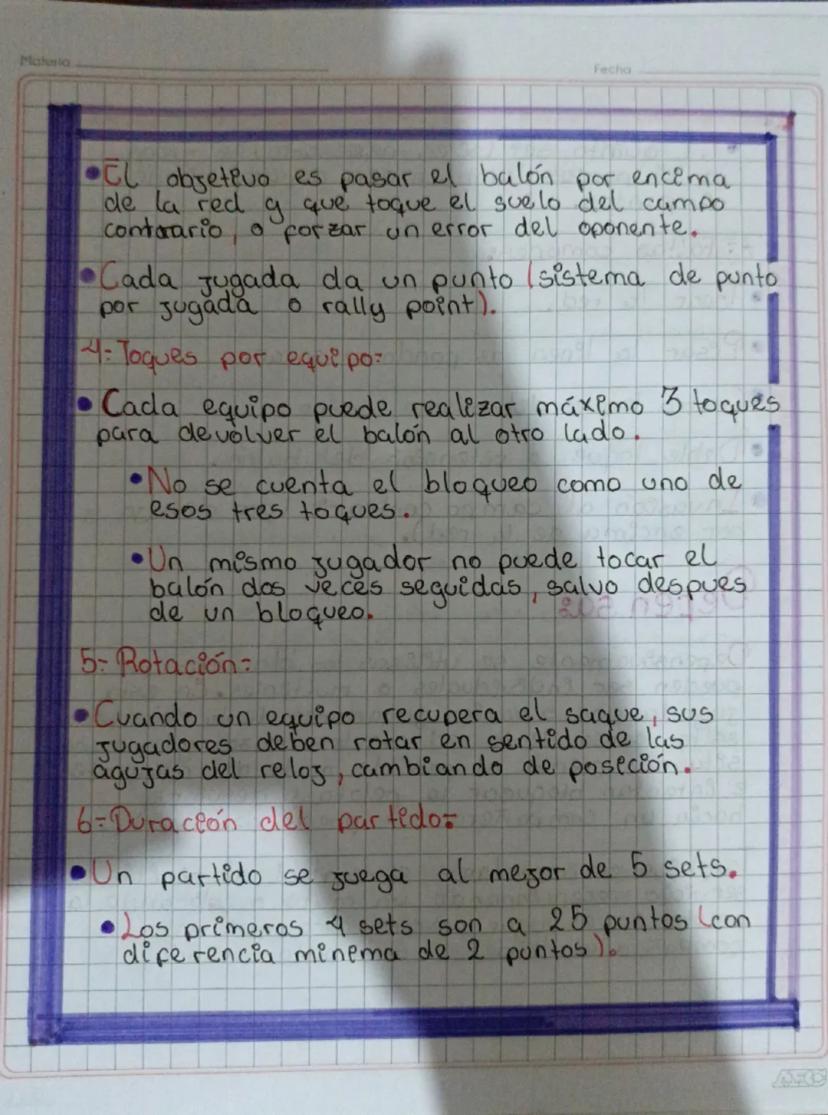 Materia
Fecha
• El objetivo es pasar el balón por encima
de la red y que toque el suelo del campo
contrario, o forzar un error del oponente.
• Cada jugada da un punto (sistema de punto
por jugada o rally point).
4: Toques por equipo:
• Cada equipo puede realizar máximo 3 toques
para devolver el balón al otro lado.
• No se cuenta el bloqueo como uno de
esos tres toques.
• Un mismo jugador no puede tocar el
balón dos veces seguidas, salvo despues
de un bloqueo.
5: Rotación:
• Cuando un equipo recupera el saque, sus
jugadores deben rotar en sentido de las
agujas del reloj, cambiando de posición.
6: Duración del partido:
• Un partido se juega al mejor de 5 sets.
• Los primeros 4 sets son a 25 puntos (con
diferencia minima de 2 puntos).